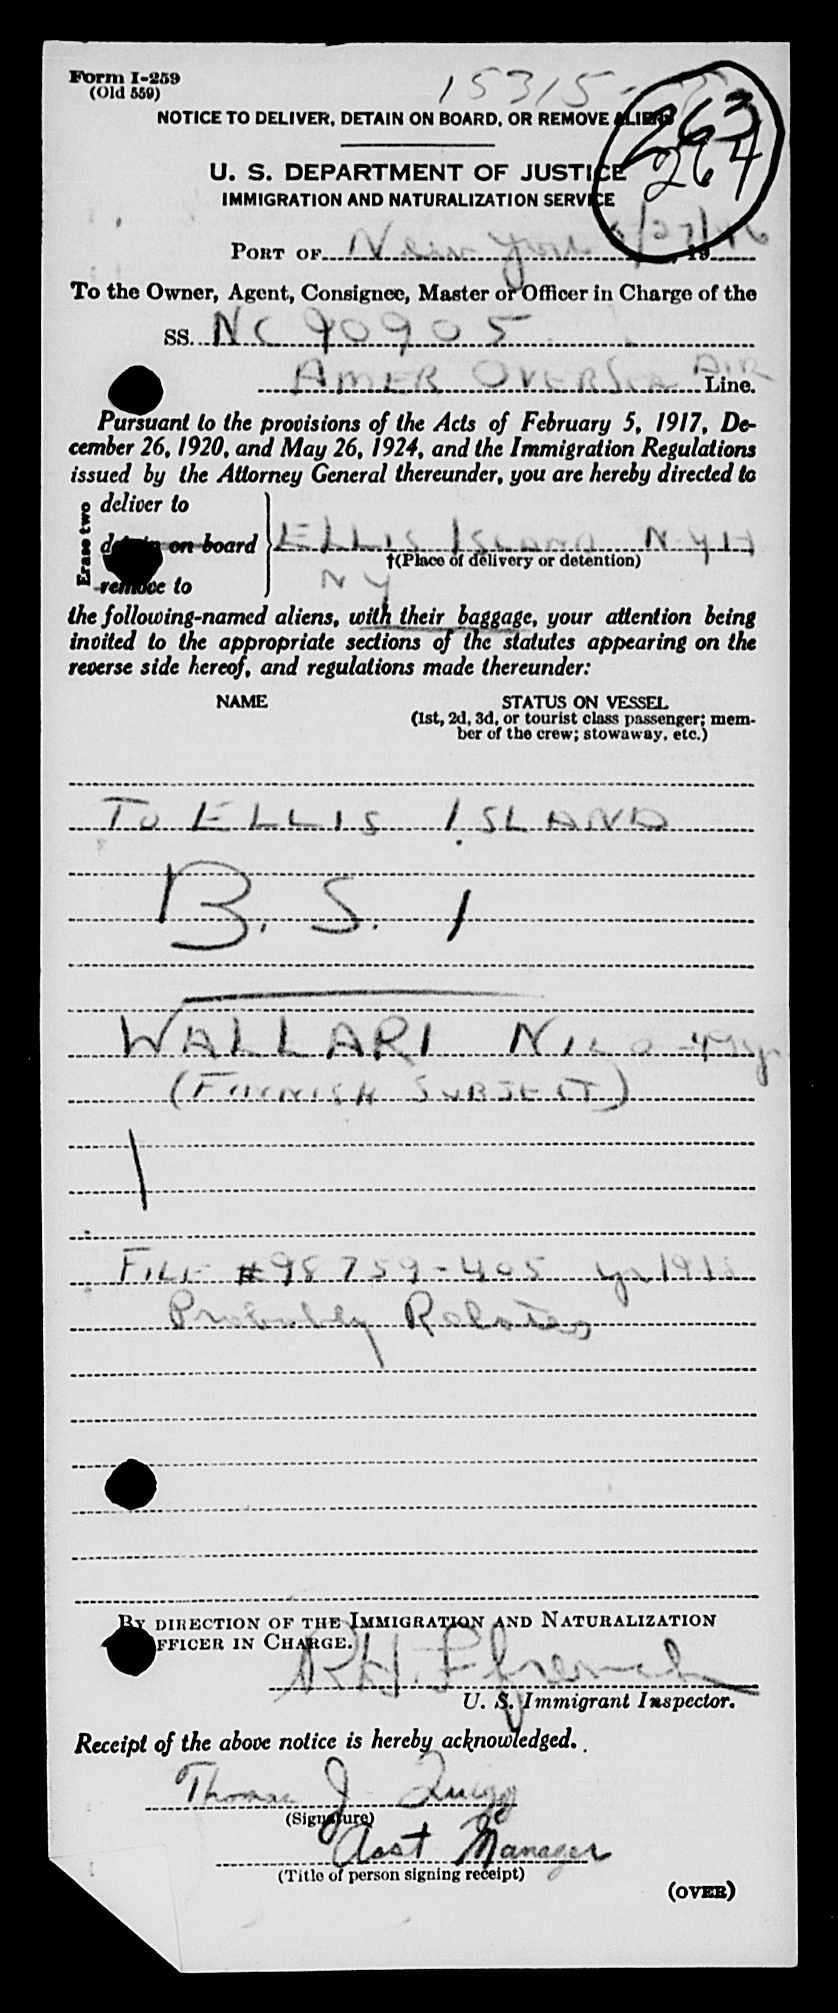 Form I-259
(Old 559)
15315-
263
264
NOTICE TO DELIVER, DETAIN ON BOARD, OR REMOVE ALIENS
U. S. DEPARTMENT OF JUSTICE
IMMIGRATION AND NATURALIZATION SERVICE
PORT OF New York /27/46, 19
To the Owner, Agent, Consignee, Master or Officer in Charge of the
SS. NC 90905
AMER OVERSEA AIR Line.
Pursuant to the provisions of the Acts of February 5, 1917, De-
cember 26, 1920, and May 26, 1924, and the Immigration Regulations
issued by the Attorney General thereunder, you are hereby directed to
Erase two
deliver to
detain on board ELLIS ISLAND NYH
†(Place of delivery or detention)
remove to NY
the following-named aliens, with their baggage, your attention being
invited to the appropriate sections of the statutes appearing on the
reverse side hereof, and regulations made thereunder:
NAME STATUS ON VESSEL
(1st, 2d, 3d, or tourist class passenger; mem-
ber of the crew; stowaway, etc.)
TO ELLIS ISLAND
B. S. I
WALLARI NILO
(FINNISH SUBJECT)
1
FILE #98759-405 yr 191
Probably Relates
BY DIRECTION OF THE IMMIGRATION AND NATURALIZATION
OFFICER IN CHARGE.
R.H. Ffrench
U. S. Immigrant Inspector.
Receipt of the above notice is hereby acknowledged.
Thomas J Quigg
(Signature)
Asst Manager
(Title of person signing receipt)
(OVER)